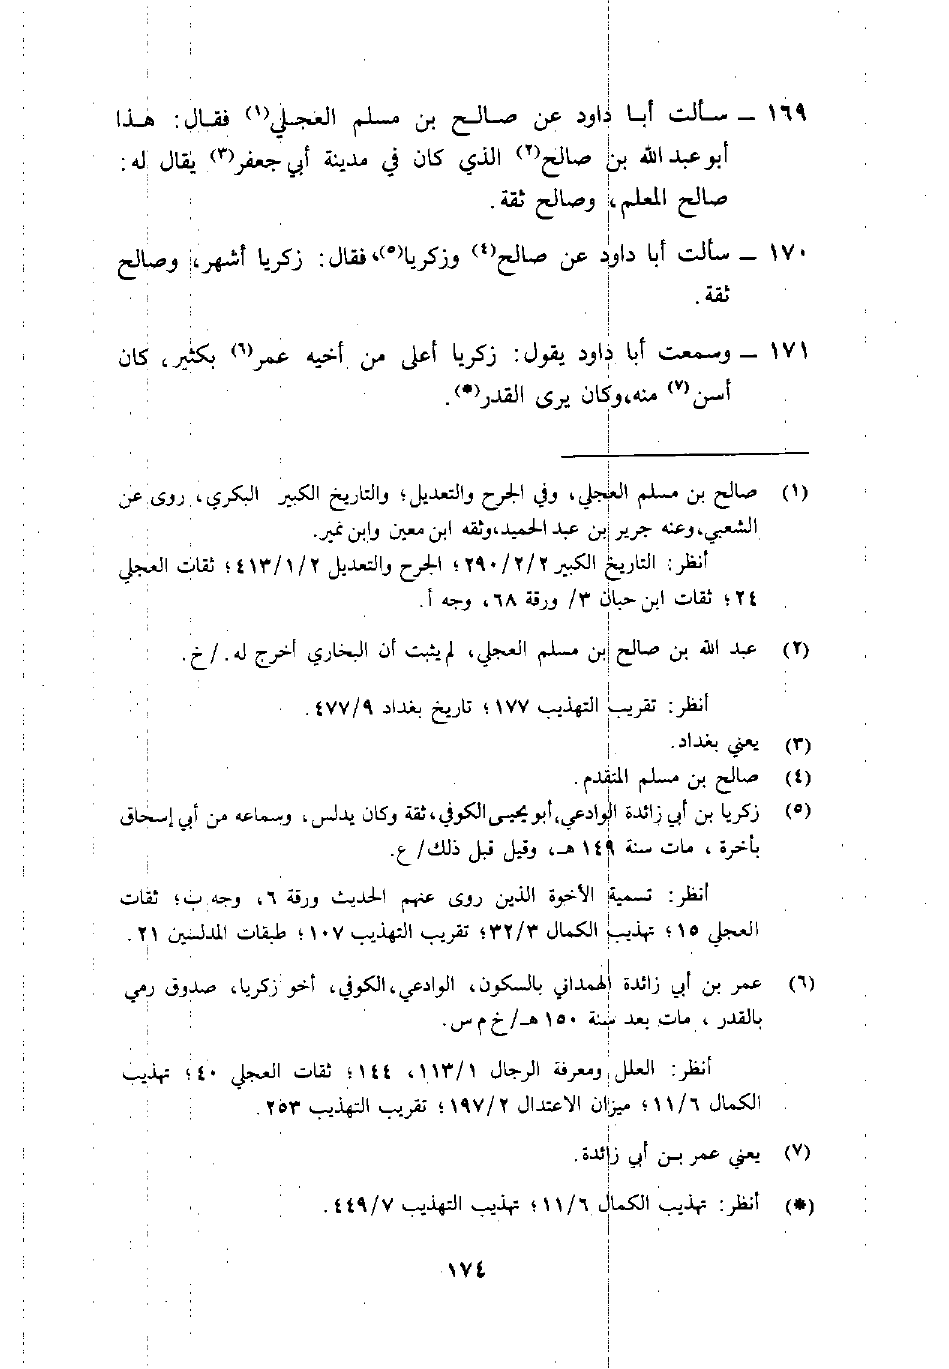 ١٦٩ ــ سألت أبا داود عن صالح بن مسلم العجلي(١) فقال: هذا
أبو عبد الله بن صالح(٢) الذي كان في مدينة أبي جعفر(٣) يقال له:
صالح المعلم، وصالح ثقة.
١٧٠ ــ سألت أبا داود عن صالح(٤) وزكريا(٥)، فقال: زكريا أشهر، وصالح
ثقة.
١٧١ ــ وسمعت أبا داود يقول: زكريا أعلى من أخيه عمر(٦) بكثير، كان
أسن(٧) منه، وكان يرى القدر(*).
(١) صالح بن مسلم العجلي، وفي الجرح والتعديل؛ والتاريخ الكبير البكري، روى عن
الشعبي، وعنه جرير بن عبد الحميد، وثقه ابن معين وابن نمير.
أنظر: التاريخ الكبير ٢٩٠/٢/٢؛ الجرح والتعديل ٤١٣/١/٢؛ ثقات العجلي
٢٤؛ ثقات ابن حبان ٣/ ورقة ٦٨، وجه أ.
(٢) عبد الله بن صالح بن مسلم العجلي، لم يثبت أن البخاري أخرج له. /خ.
أنظر: تقريب التهذيب ١٧٧؛ تاريخ بغداد ٤٧٧/٩.
(٣) يعني بغداد.
(٤) صالح بن مسلم المتقدم.
(٥) زكريا بن أبي زائدة الوادعي، أبو يحيى الكوفي، ثقة وكان يدلس، وسماعه من أبي إسحاق
بأخرة، مات سنة ١٤٩ هـ، وقيل قبل ذلك/ ع.
أنظر: تسمية الأخوة الذين روى عنهم الحديث ورقة ٦، وجه ب؛ ثقات
العجلي ١٥؛ تهذيب الكمال ٣٢/٣؛ تقريب التهذيب ١٠٧؛ طبقات المدلسين ٢١.
(٦) عمر بن أبي زائدة الهمداني بالسكون، الوادعي، الكوفي، أخو زكريا، صدوق رمي
بالقدر، مات بعد سنة ١٥٠ هـ/ خ م س.
أنظر: العلل ومعرفة الرجال ١١٣/١، ١٤٤؛ ثقات العجلي ٤٠؛ تهذيب
الكمال ١١/٦؛ ميزان الاعتدال ١٩٧/٢؛ تقريب التهذيب ٢٥٣.
(٧) يعني عمر بن أبي زائدة.
(*) أنظر: تهذيب الكمال ١١/٦؛ تهذيب التهذيب ٤٤٩/٧.
١٧٤